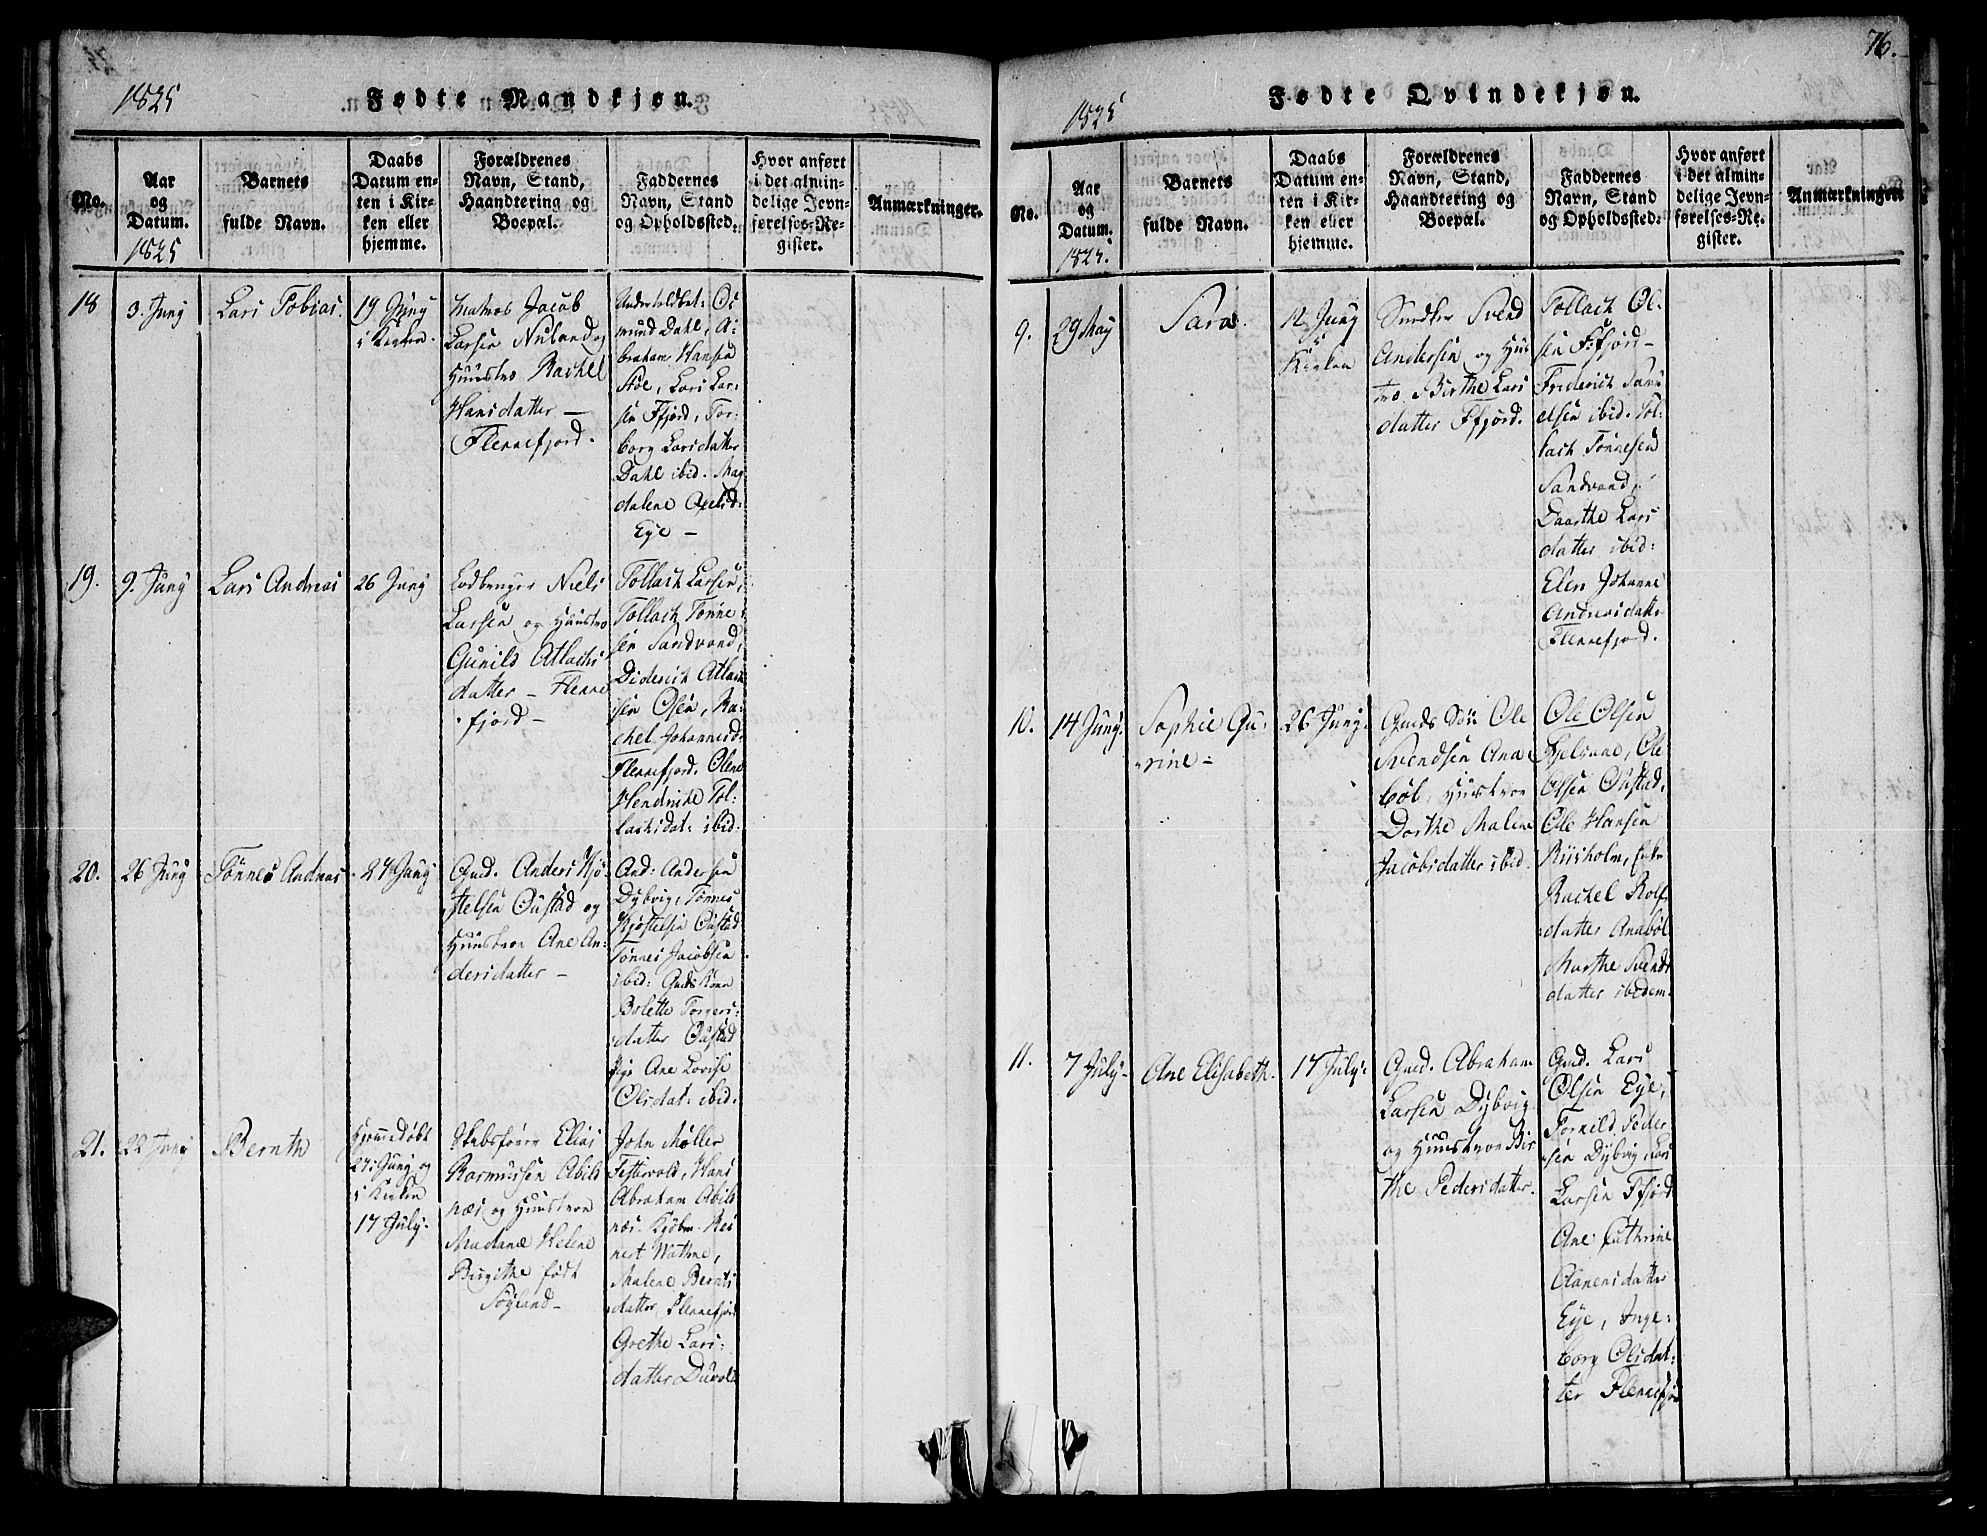 1825
Fødte Mandkjøn.
No.
Aar
og
Datum.
1825
Barnets
fulde Navn.
Daabs
Datum en-
ten i Kir-
ken eller
hjemme.
Forældrenes
Navn, Stand,
Haandtering og
Boepæl.
Faddernes
Navn, Stand
og Opholdssted.
Hvor anført
i det almin-
delige Jevn-
førelses-Re-
gister.
Anmærkninger.
18
3. Juny
Lars Tobias.
19 Juny
i Kirken.
Jacob
Larsen Nuland og
Huustro Rachel
Hansdatter —
Flekkefjord.
Os-
mund Dahl, A-
braham Hansen
Stoe, Lars Lar-
sen Ffjord, Tor-
borg Larsdatter
Dahl ibid. Mag
dalene
Eye —
19.
9. Juny
Lars Andreas
26 Juny
Niels
Larsen og Huustro
Gunild Atlachs
datter — Flekke
fjord —
Tollach Larsen,
Tollach Tønne-
sen Sandvand,
Diderich Atlach
sen Olsen, Ra-
chel Johannesd.
Flekkefjord. Olene
Hendrikke Tol-
lachsdat: ibid.
20.
26 Juny
Tønnes Andreas
27 Juny
Gmd. Anders Kjø-
stelsen Oustad og
Huustroe Ane An-
dersdatter —
And: Andersen
Dybvig, Tønnes
Kjøstelsen Oustad
Tønnes Jacobsen
ibid: Gmds Kone
Bolette Torgers-
datter Oustad
Pige Ane Lovise
Olsdat: ibid.
21.
22 Juny
Bernth
Hjemmedøbt
27 Juny og
i Kirken
17 July.
Elias
Rasmussen Abils
næs og Huustroe
Madame Helene
Birgithe født
Søyland —
John Møller
Hans
Abraham Abils
næs. Kjøbm. Rei
nert Wathne,
Malene Bernts
datter Flekkefjord
Grethe Lars-
datter
76.
1825
Fødte Qvindekjøn.
No.
Aar
og
Datum.
1825.
Barnets
fulde Navn.
Daabs
Datum en-
ten i Kir-
ken eller
hjemme.
Forældrenes
Navn, Stand,
Haandtering og
Boepæl.
Faddernes
Navn, Stand
og Opholdssted.
Hvor anført
i det almin-
delige Jevn-
førelses-Re-
gister.
Anmærkningen
9.
29 May
Sara.
12 Juny
i
Kirken
Snedker Svend
Andersen og Huus
tro. Birthe Lars
datter Ffjord.
Tollach Ol-
sen Ffjord —
Friderich Samu
elsen ibid. Tol-
lach Tønnesen
Sandvand,
Daarthe Lars
datter ibid:
Elen Johanne
Andreasdatter
Flekkefjord.
10.
14 Juny.
Sophie Gu-
rine —
26 Juny.
Gmds Søn Ole
Svendsen Ana
bøl, Huustroe
Dorthe Malene
Jacobsdatter ibid.
Ole Olsen
Ole
Olsen Oustad,
Ole Hansen
Rachel Rolfs
datter Anabøl
Marthe Svends
datter ibidem.
11.
7 July.
Ane Elisabeth.
17 July.
Gmd. Abraham
Larsen Dybvig
og Huustroe Bir
the Pedersdatter.
Gmd. Lars
Olsen Eye,
Tornild Peder
sen Dybvig, Lars
Larsen Ffjord
Ane Cathrine
Clanensdatter
Eye, Inge-
borg Olsdat-
ter Flekkefjord